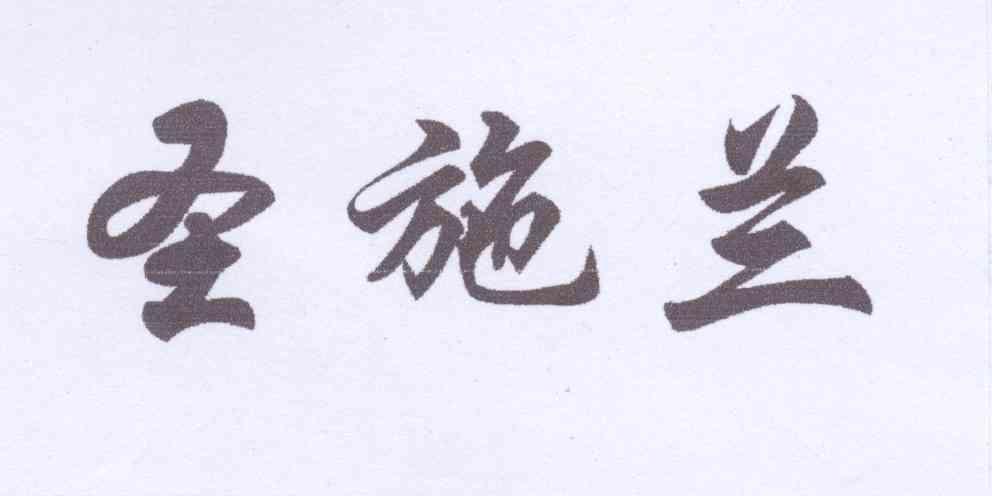 圣施兰